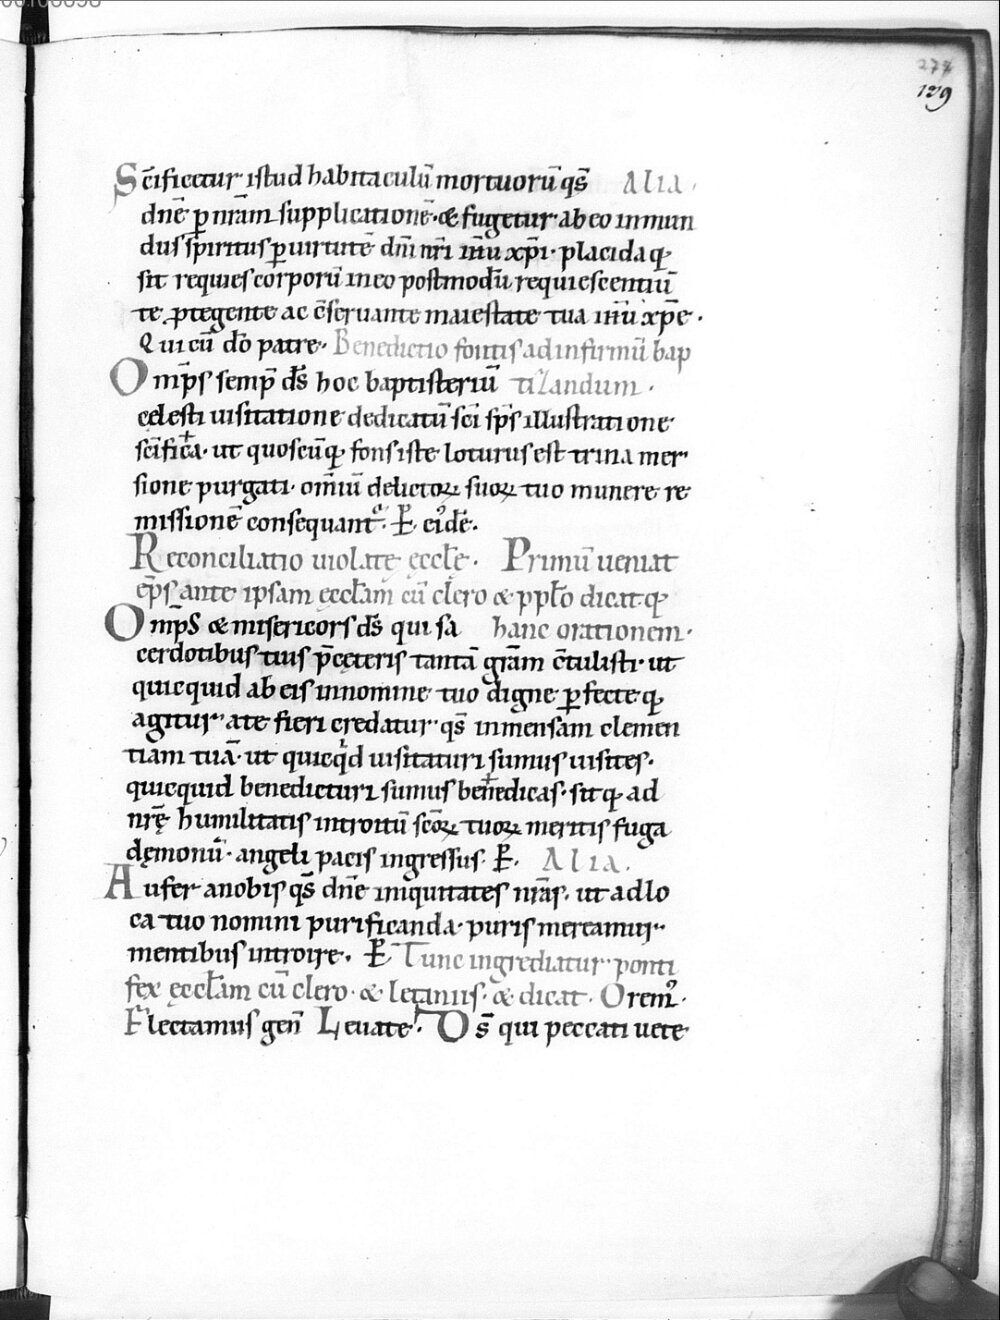 274
129
Sc̄ificetur istud habitaculū mortuorū qs̄ Alia.
dnē ꝑ nr̄am supplicationē· & fugetur ab eo inmun
dus sp̄iritus ꝑ uirtutē dn̄i nr̄i ih̄u xp̄i· placida qꝫ
sit requies corporū in eo postmodū requiescentiū
te ꝓtegente ac c̄seruante maiestate tua ih̄u xp̄e.
Qui cū dō patre· Benedictio fontis ad infirmū bap
Om̄ps semp̄ ds̄ hoc baptisteriū tizandum.
celesti uisitatione dedicatū sc̄i sp̄s illustratione
sc̄ific✝a· ut quoscūqꝫ fons iste loturus est trina mer
sione purgati· om̄iū delictoꝝ suoꝝ tuo munere re
missionē consequant᷑· P̱ eiꝰdē.
Reconciliatio uiolatę ęccl̄ę. Primū ueniat
ep̄s ante ipsam ęccl̄am cū clero & pp̄lo dicatqꝫ
Om̄ps & misericors ds̄ qui sa hanc orationem.
cerdotibus tuis p̄ cęteris tantā gr̄am c̄tulisti· ut
quicquid ab eis in nomine tuo digne ꝑfecteqꝫ
agitur a te fieri credatur· qs̄ inmensam clemen
tiam tuā· ut quicqͥd uisitaturi sumus uisites·
quicquid benedicturi sumus bene✝dicas· sitqꝫ ad
nr̄ę humilitatis introitū sc̄oꝝ tuoꝝ meritis fuga
dęmonū· angeli pacis ingressus· P̱. Alia.
Aufer a nobis qs̄ dnē iniquitates nr̄as· ut ad lo
ca tuo nomini purificanda· puris mereamur
mentibus introire. P̱ Tunc ingrediatur ponti
fex ęccl̄am cū clero· & letaniis· & dicat· Oremꝰ·
Flectamus gen̄ Leuate. Ds̄ qui peccati uete